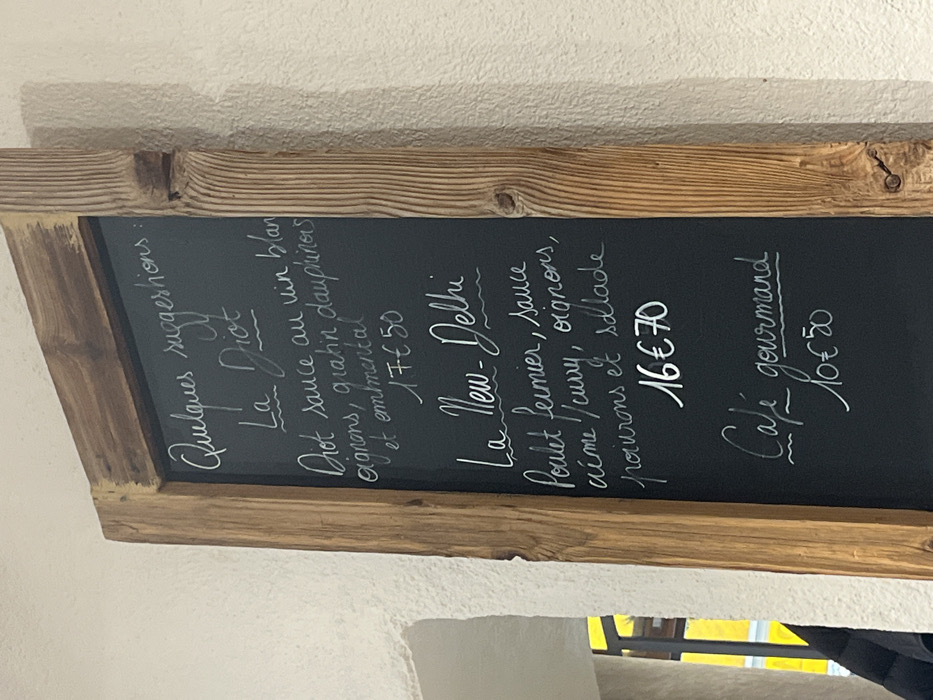 Quelques suggestions :
La Diot
Diot sauce au vin blan
oignons, gratin dauphinois
et emmental
17€50
La New-Delhi
Poulet fermier, sauce
crème/curry, oignons,
poivrons et salade
16€70
Café gourmand
10€50